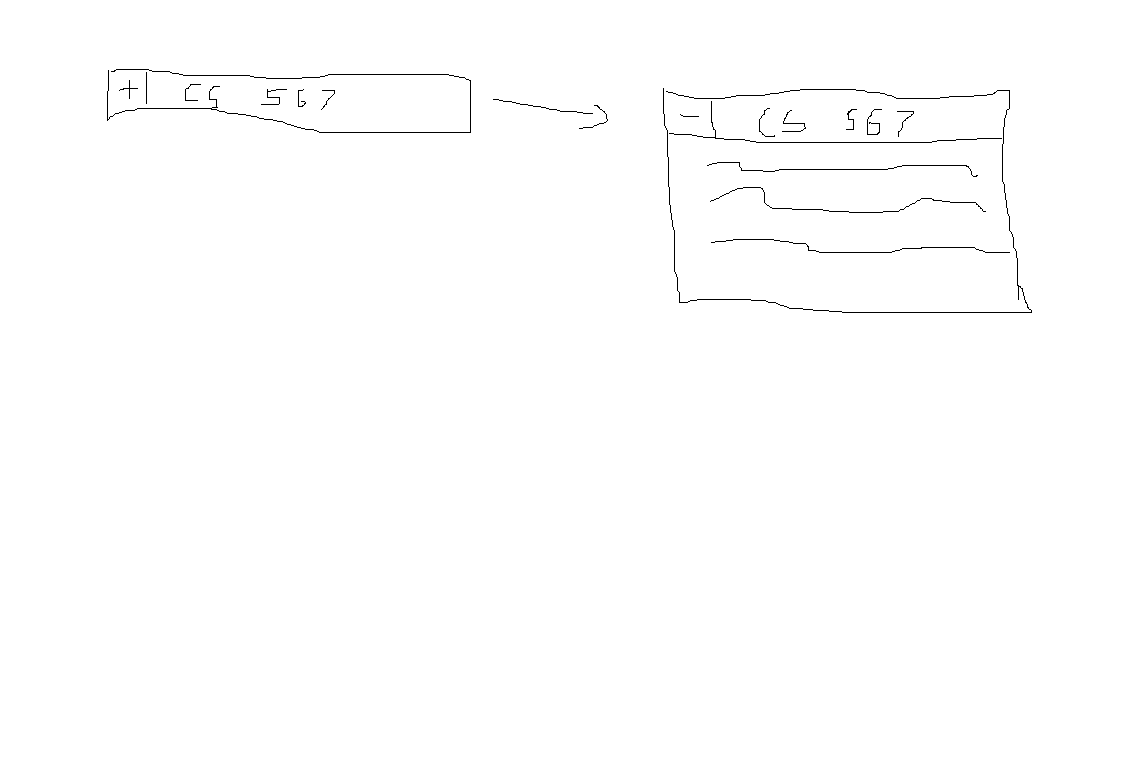 + CS 567
- CS 567